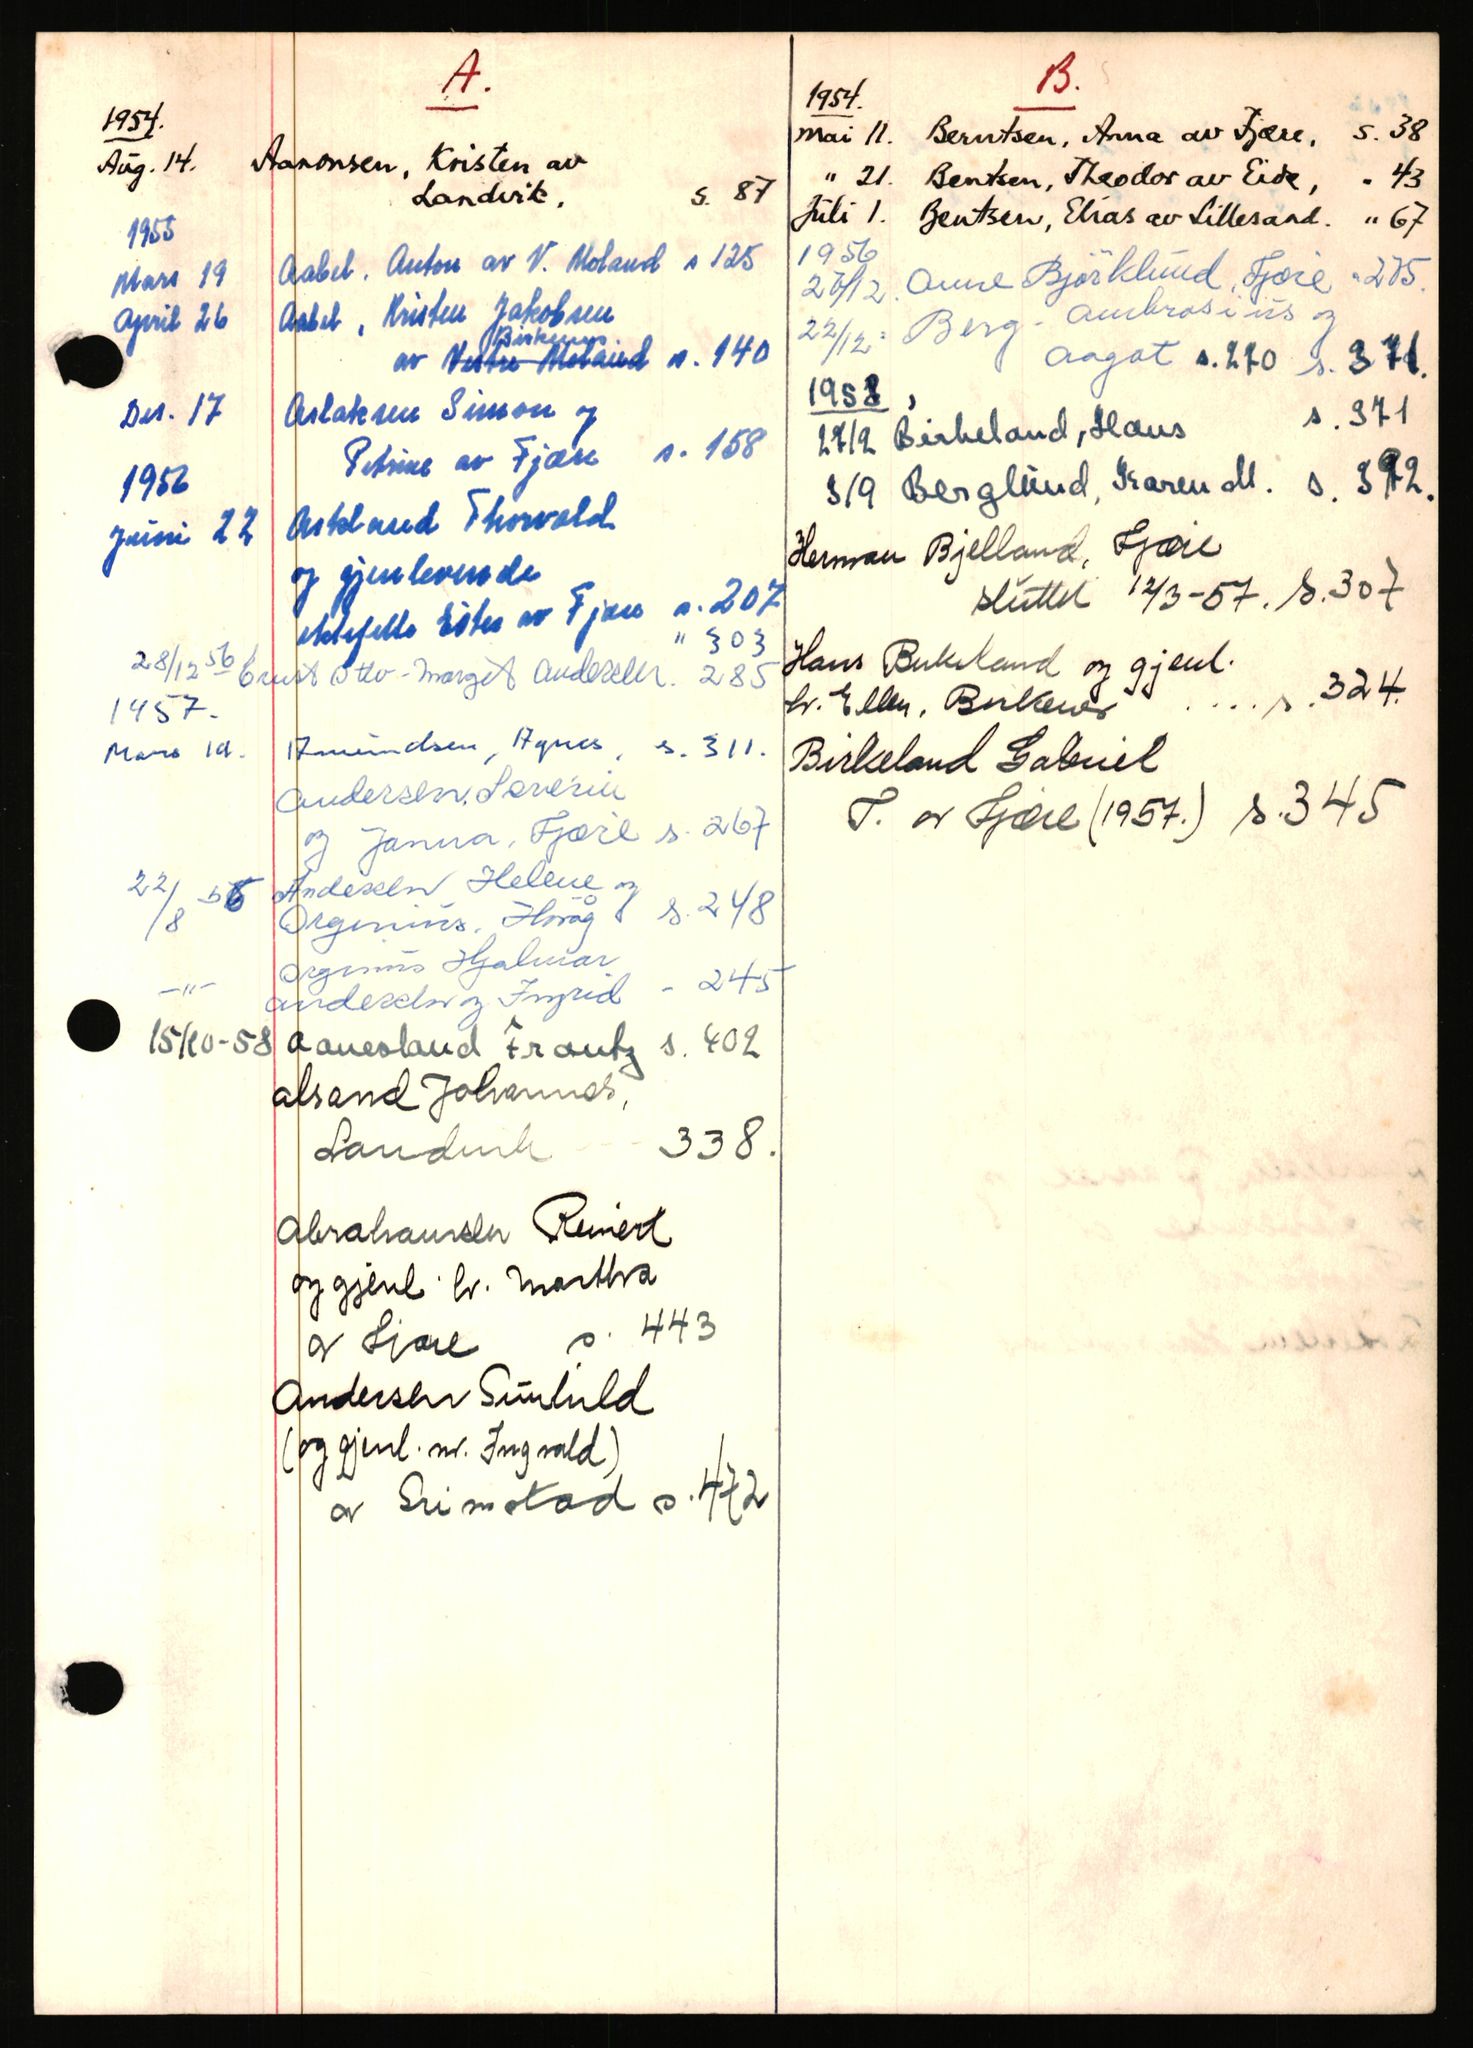 A.
1954.
Aug. 14. Aanonsen, Kristen av
Landvik, s. 87
1955
Mars 19 Aabel. Anton av V. Moland s 125
April 26 Aabel, Kristen Jakobsen
Birkenes
av Vestre Moland s. 140
Des. 17 Aslaksen Simon og
Petrine av Fjære s. 158
1956
Juni 22 Askland Thorvald
og gjenlevende
ektefelle Ester av Fjære s. 207
" 303
28/12 56 Ernst Otto - Margit Andersen. 285
1957.
Mars 19. Amundsen, Agnes, s. 311.
Andersen, Severin
og Janna, Fjære s. 267
22/8 56 Andersen Helene og
Orgenius, Høvåg s. 248
Orgenius Hjalmar
-"- Andersen og Ingrid - 245
15/10-58 Aanesland Frantz s. 402
Alsand Johannes,
Landvik 338.
Abrahamsen Reinert
og gjenl. hr. Martha
av Fjære s. 443
Andersen Sunhild
(og gjenl. m. Ingvald)
av Grimstad s. 472
B.
1954.
Mai 11. Berntsen, Anna av Fjære, s. 38
" 21. Bentsen, Theodor av Eide, " 43
Juli 1. Bentsen, Elias av Lillesand. " 67
1956
27/12. Anne Björklund, Fjære " 275.
22/12 = Berg - Ambrosius og
Aagot s. 270 s. 371.
1958,
27/2 Birkeland, Hans s. 371
3/9 Berglund, Karen M. s. 392.
Herman Bjelland, Fjære
sluttet 12/3-57. s. 307
Hans Birkeland og gjenl.
hr. Ellen, Birkenes .... s. 324.
Birkeland Gabriel
T. av Fjære (1957.) s. 345